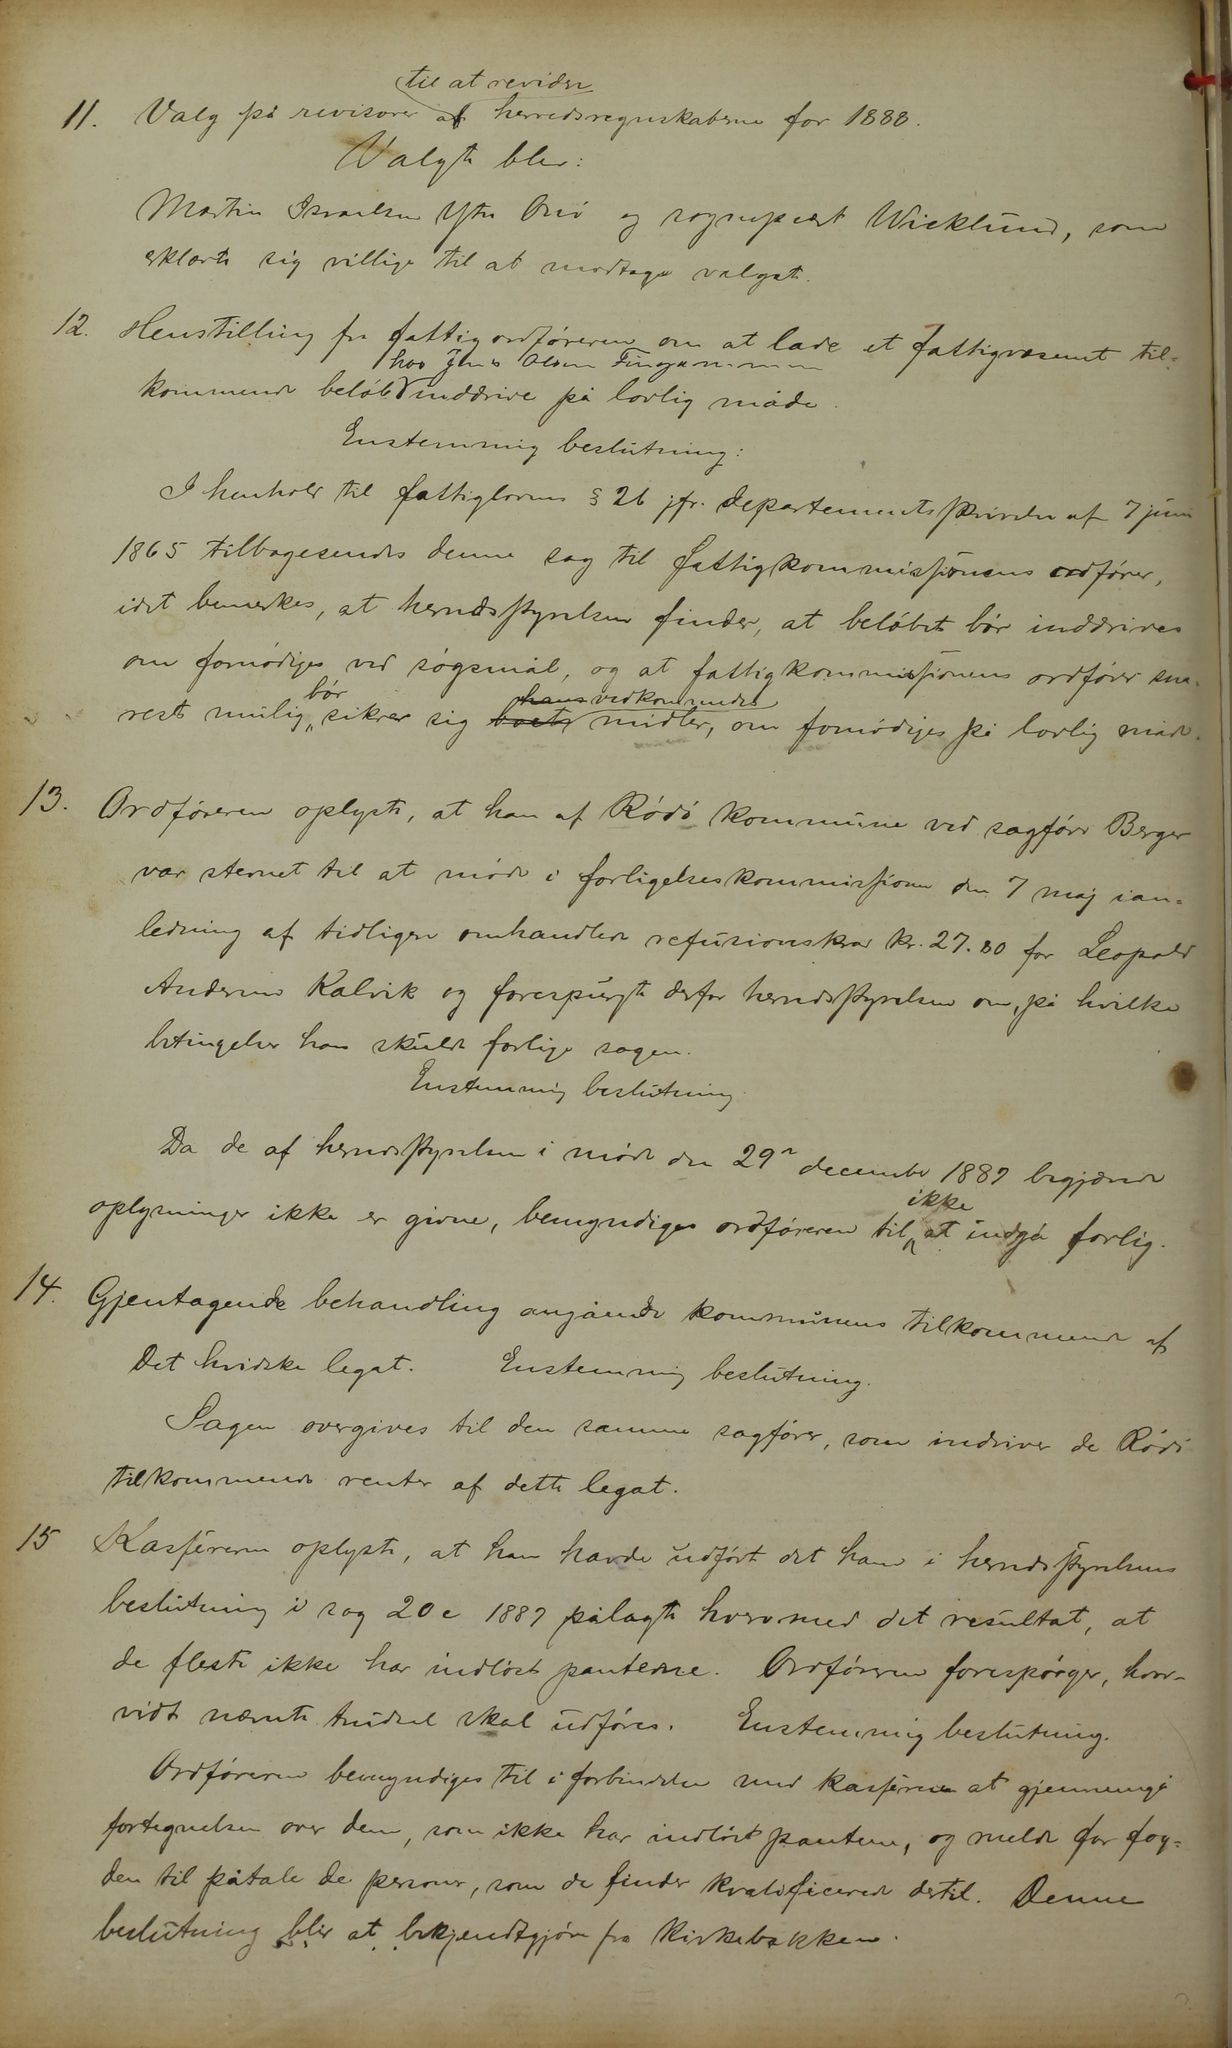 til at revidere
11. Valg på revisorer af herredsregnskaberne for 1888.
Valgte blev:
Martin Israelsen Ytre Onö og sogneprest Wicklund, som
erklærte sig villige til at modtage valget.
12. Henstilling fra fattigordføreren om at lade et fattigvæsenet til-
hos Jens Olsen
kommende beløb inddrive på lovlig måde.
Enstemmig beslutning:
I henhold til fattiglovens § 26 jfr. departementsskrivelse af 7 juni
1865 tilbagesendes denne sag til fattigkommissionens ordfører,
idet bemerkes, at herredsstyrelsen finder, at beløbet bör inddrives
om fornødiges ved søgsmål, og at fattigkommissionens ordfører sna-
bör hans vedkommendes
rest mulig sikrer sig boets midler, om fornødiges på lovlig måde.
13. Ordføreren oplyste, at han af Rödö kommune ved sagfører Berger
var stevnet til at møde i forligelseskommissionen den 7 maj i an-
ledning af tidligere omhandlede refusionskrav kr. 27.80 for Leopold
Andersen Kalvik og forespurgte derfor herredsstyrelsen om, på hvilke
betingelser han skulde forlige sagen.
Enstemmig beslutning.
Da de af herredsstyrelsen i møde den 29n december 1887 begjærede
ikke
oplysninger ikke er givne, bemyndiges ordføreren til at indgå forlig.
14. Gjentagende behandling angående kommunens tilkommende af
Det hvidske legat. Enstemmig beslutning.
Sagen overgives til den samme sagfører, som indriver de Rödö
tilkommende renter af dette legat.
15 Kassereren oplyste, at han havde udført det ham i herredsstyrelsens
beslutning i sag 20 c 1887 pålagte hvervmed det resultat, at
de fleste ikke har indløst panterne. Ordføreren forespørger, hvor-
vidt nævnte trudsel skal udføres. Enstemmig beslutning.
Ordføreren bemyndiges til i forbindelse med kassereren at gjennemgå
fortegnelsen over dem, som ikke har indløst panterne, og melde for fog-
den til påtale de personer, som de finder kvalificerede dertil. Denne
beslutning blir at bekjendtgjøre fra kirkebakken.